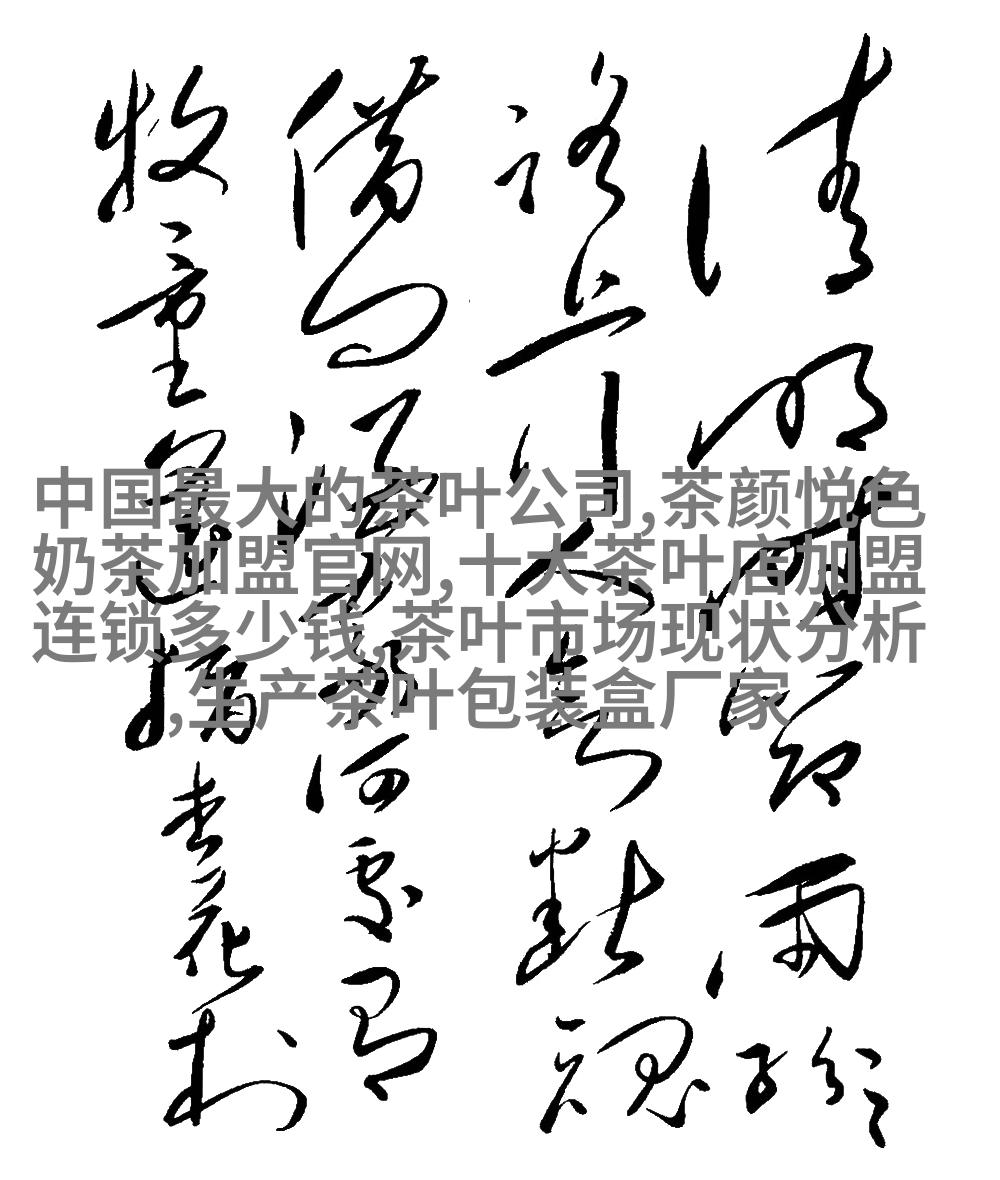 清明時節雨紛紛
路上行人欲斷魂
借問酒家何處有
牧童遙指杏花村
中国最大的茶叶公司,茶颜悦色
奶茶加盟官网,十大茶叶店加盟
连锁多少钱,茶叶市场现状分析
,生产茶叶包装盒厂家